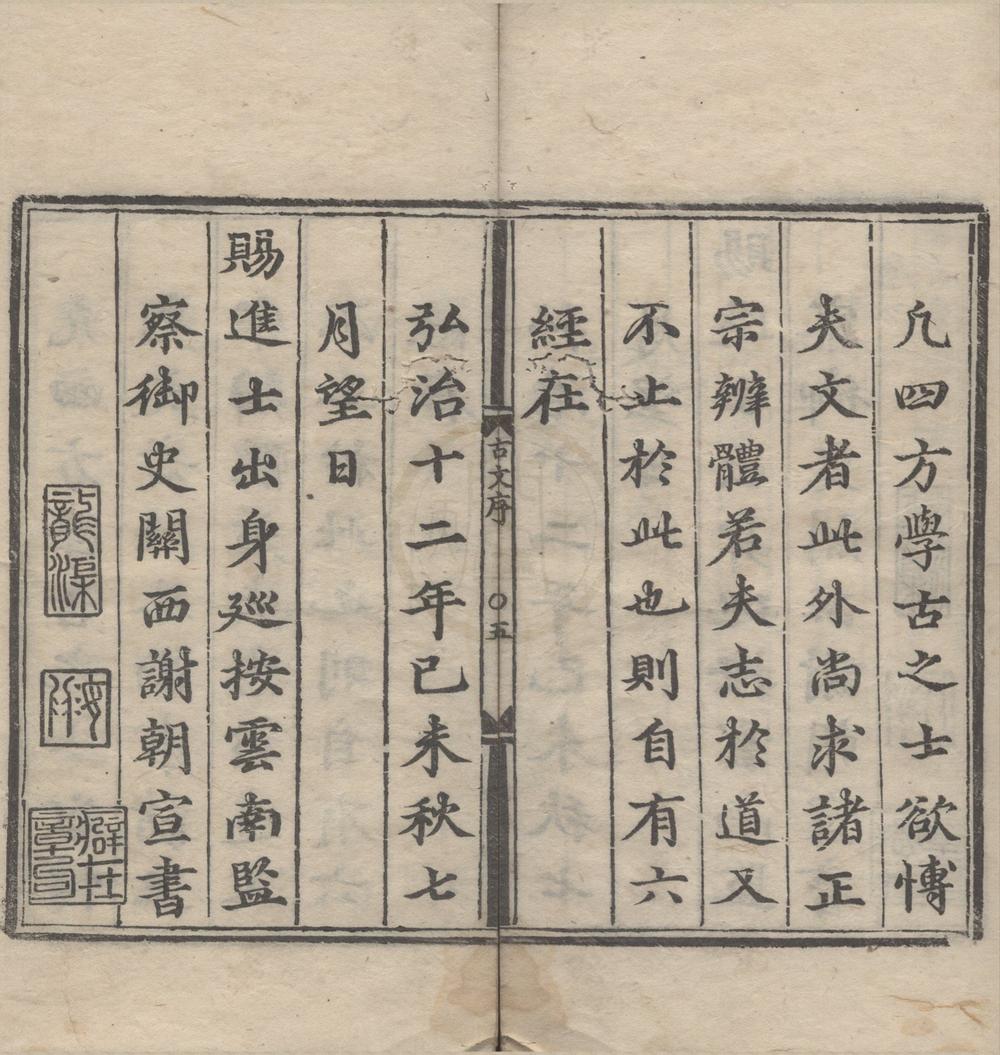 凡四方學古之士欲博
夫文者此外尚求諸正
宗辨體若夫志於道又
不止於此也則自有六
經在
古文序
○五
弘治十二年己未秋七
月望日
賜進士出身巡按雲南監
察御史關西謝朝宣書